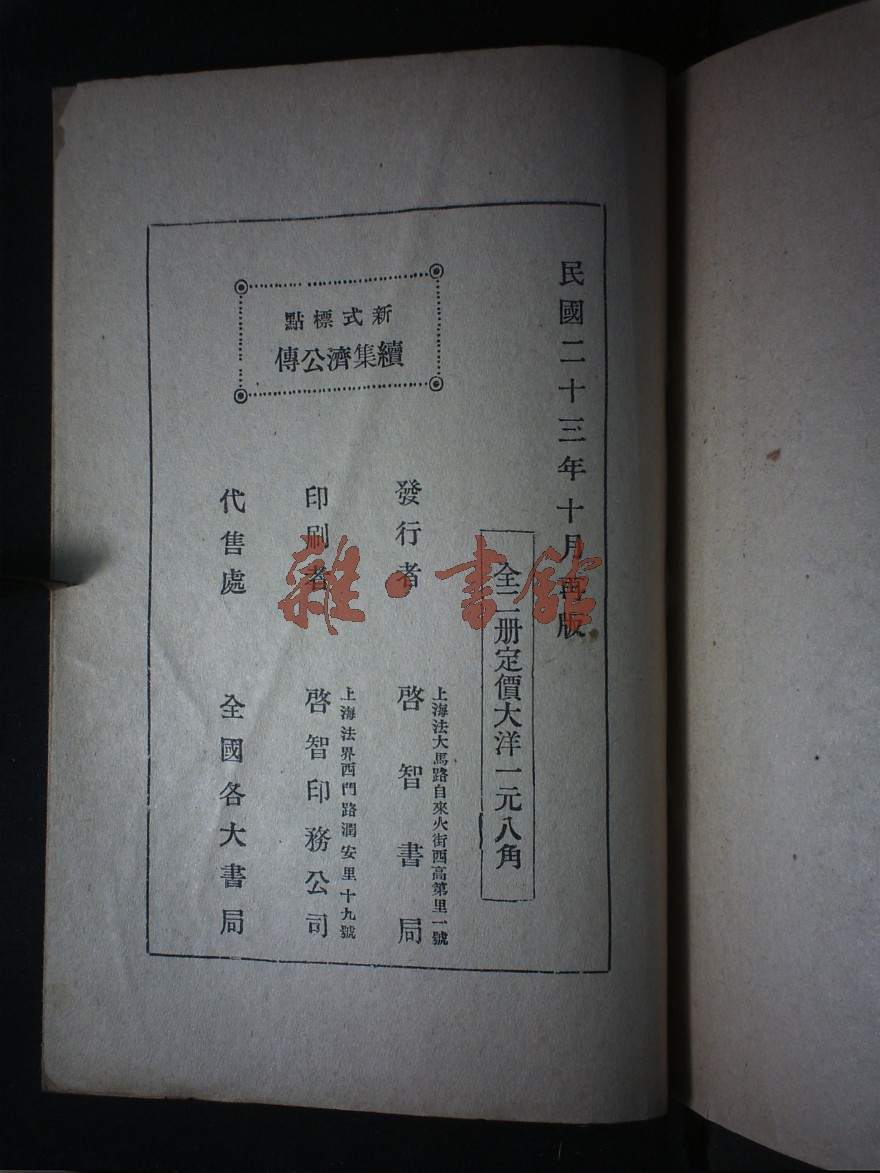 民國二十三年十月再版
全二册定價大洋一元八角
新式標點
續集濟公傳
發行者
上海法大馬路自來火街西高第里一號
啓智書局
印刷者
上海法界西門路潤安里十九號
啓智印務公司
代售處
全國各大書局
雜·書館